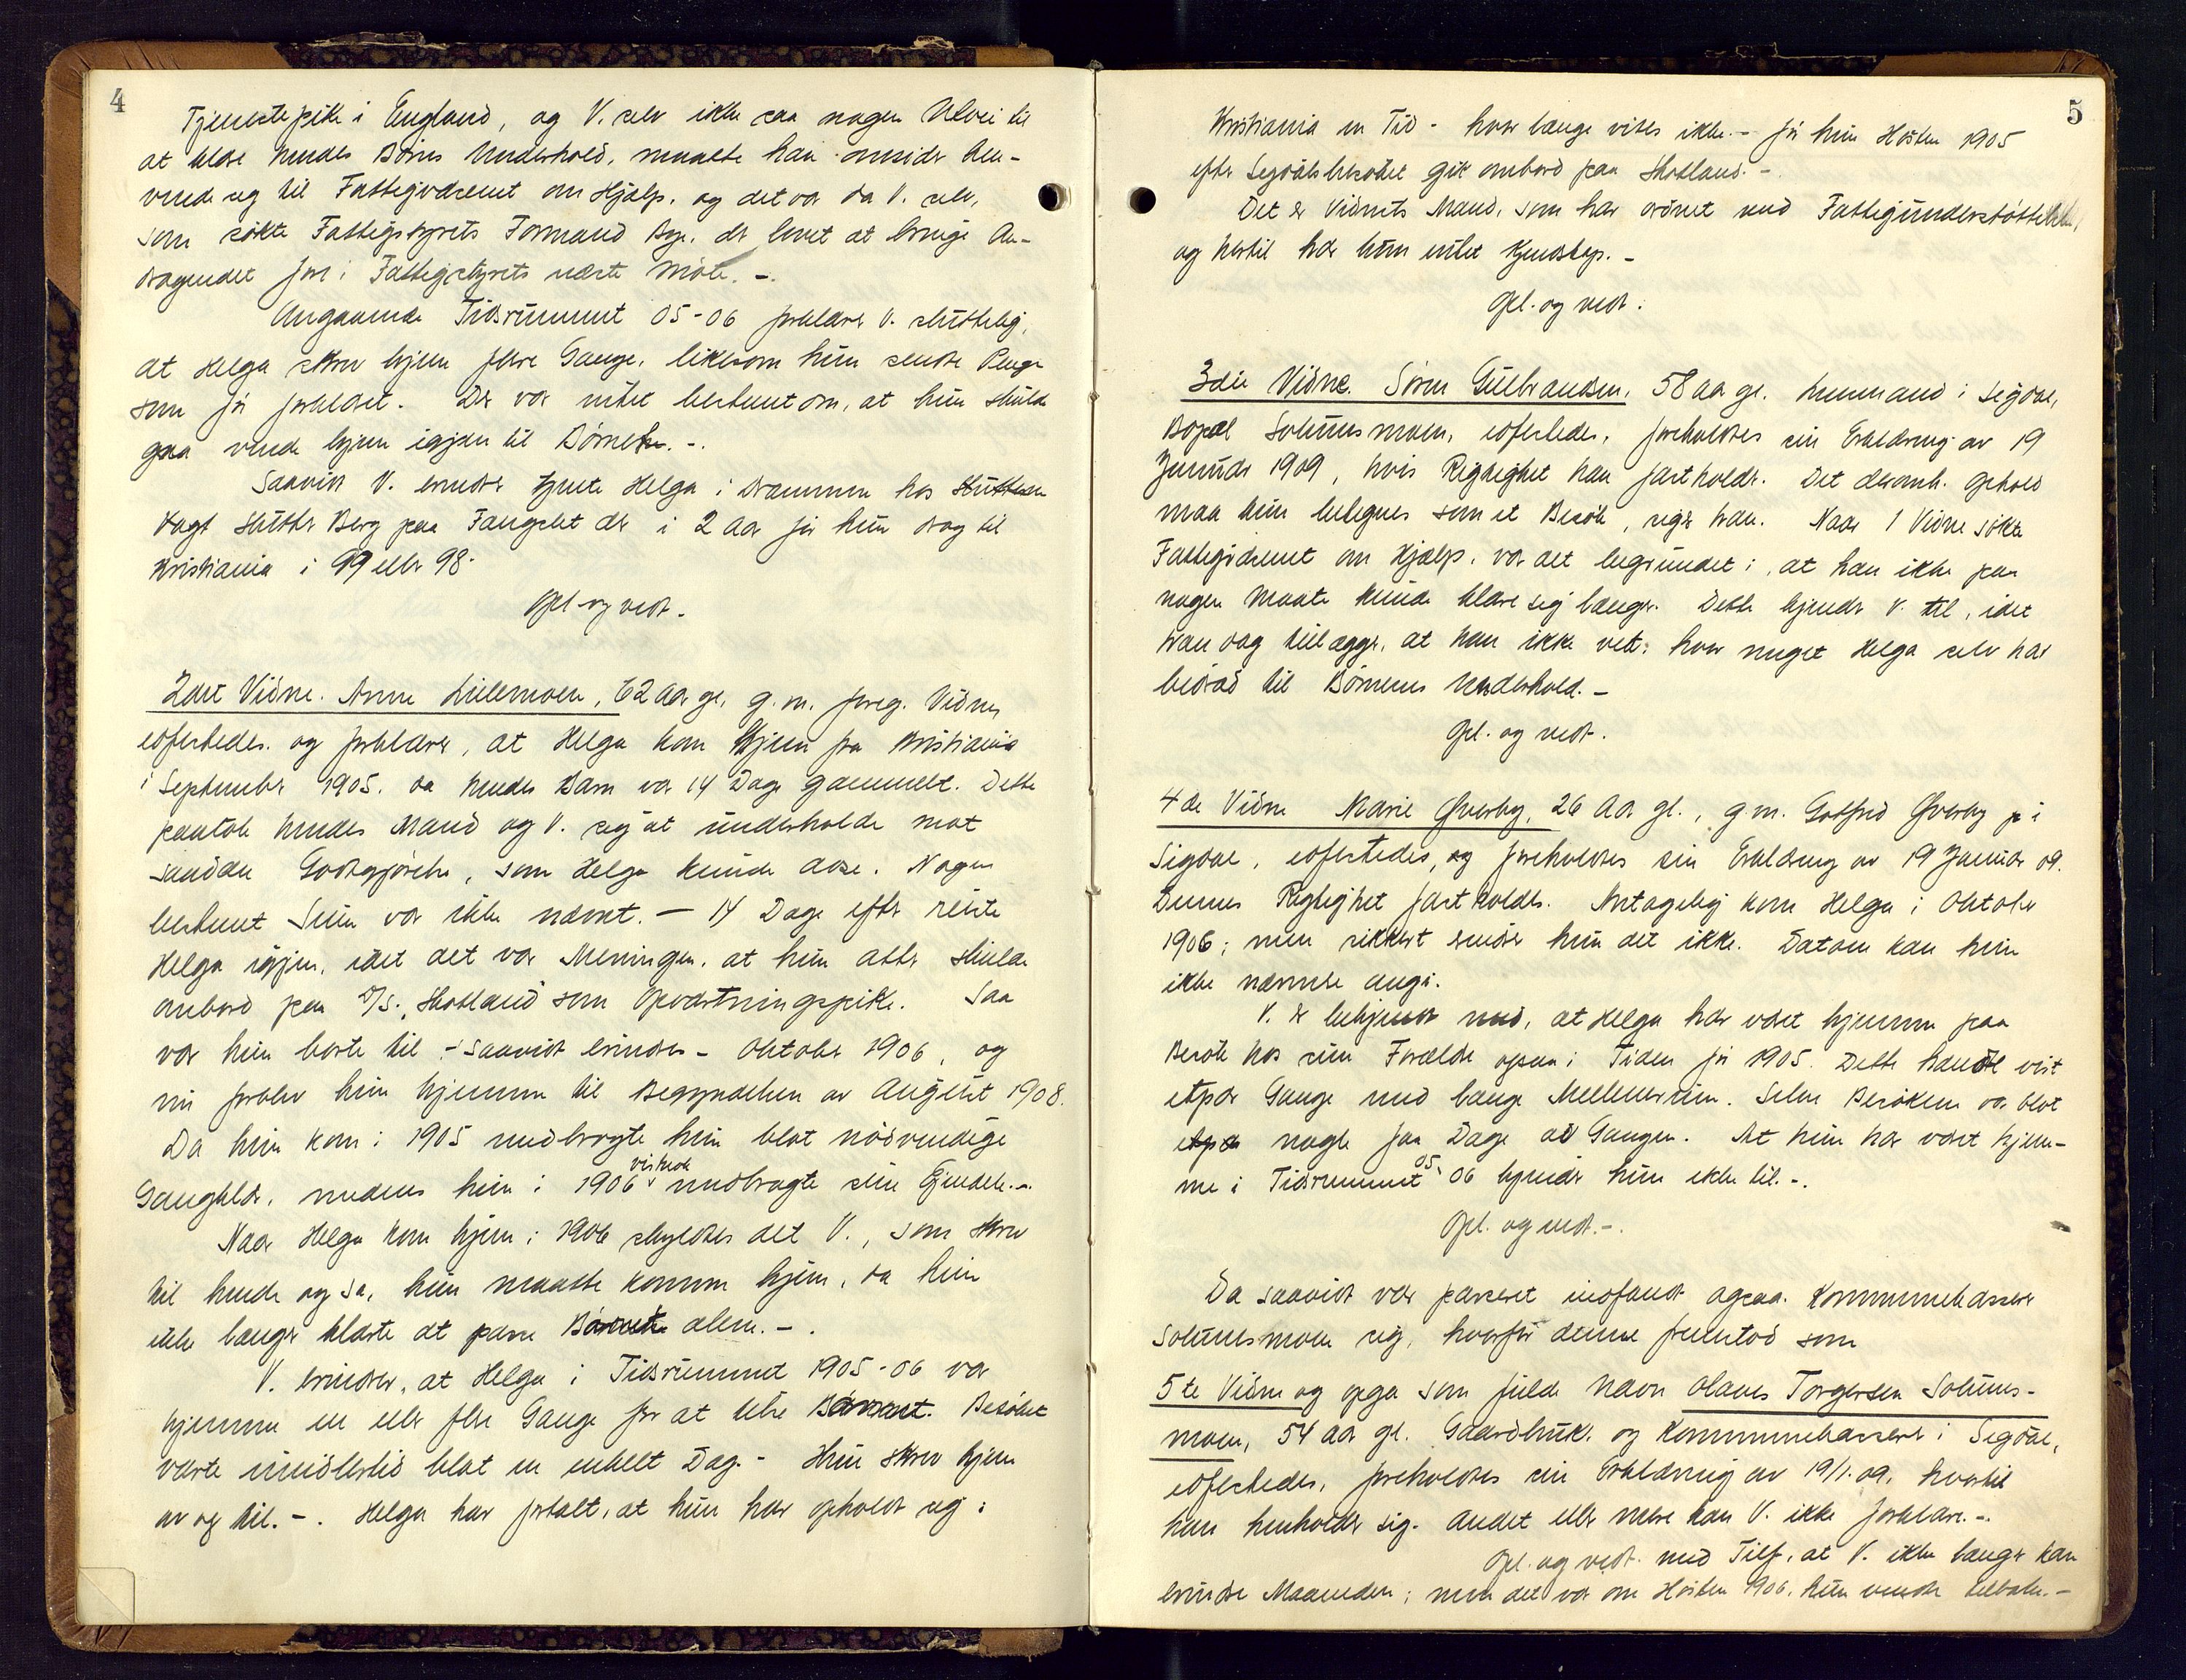 4
Tjenestepike i England, og V. selv ikke saa nogen Utvei til
at klare hendes Børns Underhold, maatte han omsider hen-
vende seg til Fattigvæsenet om Hjælp, og det var da V. selv,
som søkte Fattigstyrets Formand Bye, der lovet at bringe An-
dragendet frem i Fattigstyrets næste Møte. -.
Angaaende Tidsrummet 05-06 forklarer V. sluttelig,
at Helga skrev hjem flere Gange, likesom hun sendte Penge
som før forklaret. Der var intet bestemt om, at hun skulde
vende hjem igjen til Børnene. -.
Saavidt V. erindrer tjente Helga i Drammen hos
Vagt Slutter Berg paa Fængslet der i 2 Aar før hun drog til
Kristiania i 97 eller 98.
Opl. og vedt.
2det Vidne. Anne Lislemoen, 62 Aar gl, g.m. foreg. Vidne
edfæstedes og forklarer, at Helga kom hjem fra Kristiania
i September 1905, da hendes Barn var 14 Dage gammelt. Dette
paatok hendes Mand og V. seg at underholde mot
saadan Godtgjørelse, som Helga kunde avse. Nogen
bestemt Sum var ikke nævnt. - 14 Dage efter reiste
Helga igjen, idet det var Meningen, at hun atter skulde
ombord paa D/S. "Skotland" som Opvartningspike. Saa
var hun borte til - saavidt erindres - Oktober 1906, og
nu forblev hun hjemme til Begyndelsen av August 1908.
Da hun kom i 1905 medbragte hun blot nødvendige
Gangklær, medens hun i 1906 medbragte sine Eiendele.-.
Naar Helga kom hjem i 1906 skyldtes det V., som skrev
til hende og sa, hun maatte komme hjem, da hun
ikke længer klarte at passe Barnet alene. -.
V. erindrer, at Helga i Tidsrummet 1905-06 var
hjemme en eller flere Gange for at se Barnet. Besøket
varte imidlertid blot en enkelt Dag. - Hun skrev hjem
av og til. -. Helga har fortalt, at hun har opholdt seg i
5
Kristiania en Tid - hvor længe vites ikke. - før hun Høsten 1905
efter Sigdalsbesøket gik ombord paa Skotland. -
Det er Vidnets Mand, som har ordnet med Fattigunderstøttelsen,
og hertil har hun intet Kjendskap. -
Opl. og vedt.
3die Vidne. Søren Gulbrandsen, 58 Aar gl. Lensmand i Sigdal,
Bopæl Solumsmoen, edfestedes, foreholdtes sin Erklæring av 19
Januar 1909, hvis Rigtighet han fastholder. Det deromh. Ophold
maa hun betegnes som et Besøk, siger han. Naar 1 Vidne søkte
Fattigvæsenet om Hjælp, var det begrundet i, at han ikke paa
nogen Maate kunde klare sig længer. Dette kjender V. til, idet
han dog tillægger, at han ikke vet, hvor meget Helga selv har
bidrad til Børnenes Underhold. -
Opl. og vedt.
4de Vidne Marie Øverby, 26 Aar gl., g.m. Gotfred Øverby i
Sigdal, edfestedes, og foreholdtes sin Erklæring av 19 Januar 09.
Dennes Rigtighet fastholdes. Antagelig kom Helga i Oktober
1906; men sikkert erindrer hun det ikke. Datoen kan hun
ikke nærmere angi.
V. er bekjendt med, at Helga har været hjemme paa
Besøk hos sine Forældre ogsaa i Tiden før 1905. Dette hændte vist
etpar Gange med lange Mellemrum. Selve Besøkene var blot
nogle faa Dage ad Gangen. At hun har været hjem-
me i Tidsrummet 05-06 kjender hun ikke til. -.
Opl. og vedt. -.
Da saavidt var passeret indfandt ogsaa Kommunekasserer
Solumsmoen sig, hvorfor denne fremstod som
5te Vidne og opga som fulde Navn Olaves Torgersen Solums-
moen, 54 Aar gl. Gaardbruk. og Kommunekasserer i Sigdal,
edfestedes, foreholdtes sin Erklæring av 19/1.09, hvortil
han henholder sig. Andet eller mere kan V. ikke forklare. -.
Opl. og vedt. med Tilf. at V. ikke længer kan
erindre Maaneden; men det var om Høsten 1906, hun vendte tilbake. -